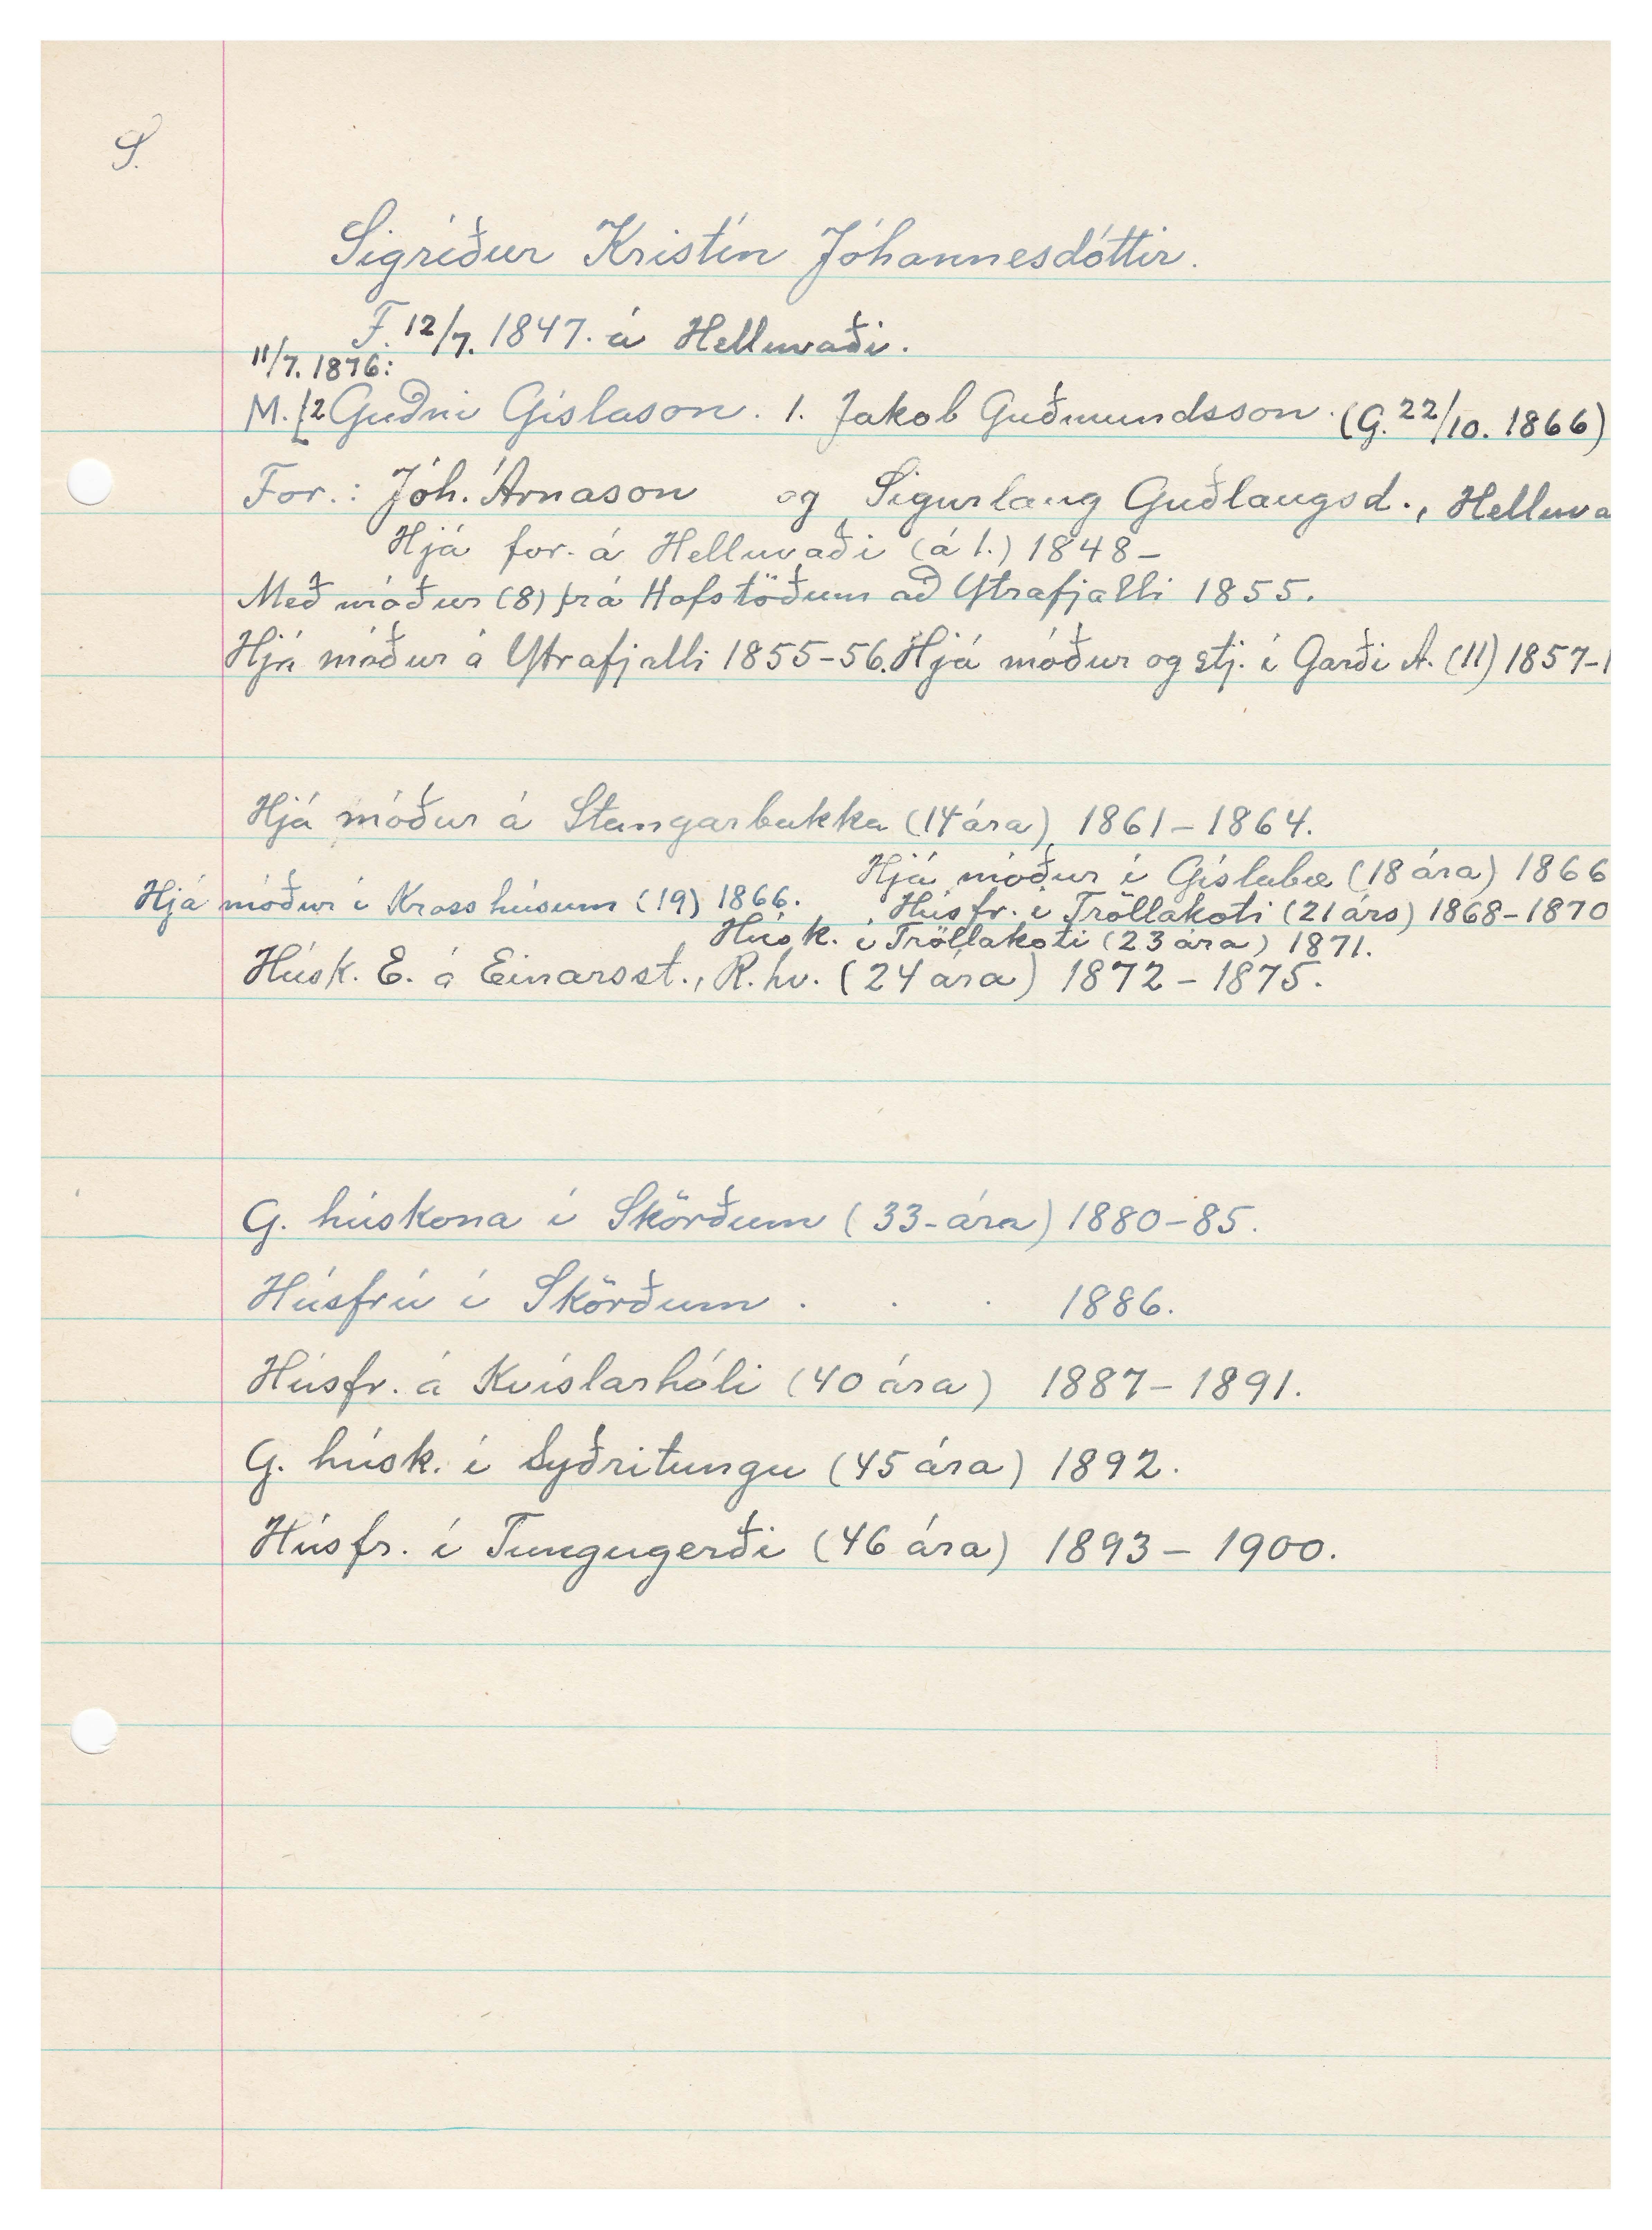 S.
Sigríður Kristín Jóhannesdóttir.
F. 12/7. 1847. á Helluvaði.
11/7. 1876:
M. [2 Guðni Gíslason. 1. Jakob Guðmundsson. (G. 22/10. 1866)
For.: Jóh. Árnason og Sigurlaug Guðlaugsd., Helluva
Hjá for. á Helluvaði (á 1.) 1848-
Með móður (8) frá Hofstöðum að Ytrafjalli 1855.
Hjá móður á Ytrafjalli 1855-56. Hjá móður og stj. í Garði A. (11) 1857-1
Hjá móður á Stangarbakka (14 ára) 1861-1864.
Hjá móður í Gíslabæ (18 ára) 1866
Hjá móður í Krosshúsum (19) 1866. Húsfr. í Tröllakoti (21 árs) 1868-1870
Húsk. í Tröllakoti (23 ára) 1871.
Húsk. E. á Einarsst., R.hv. (24 ára) 1872-1875.
G. húskona í Skörðum (33-ára) 1880-85.
Húsfrú í Skörðum . . . 1886.
Húsfr. á Kvíslarhóli (40 ára) 1887-1891.
G. húsk. í Syðritungu (45 ára) 1892.
Húsfr. í Tungugerði (46 ára) 1893-1900.